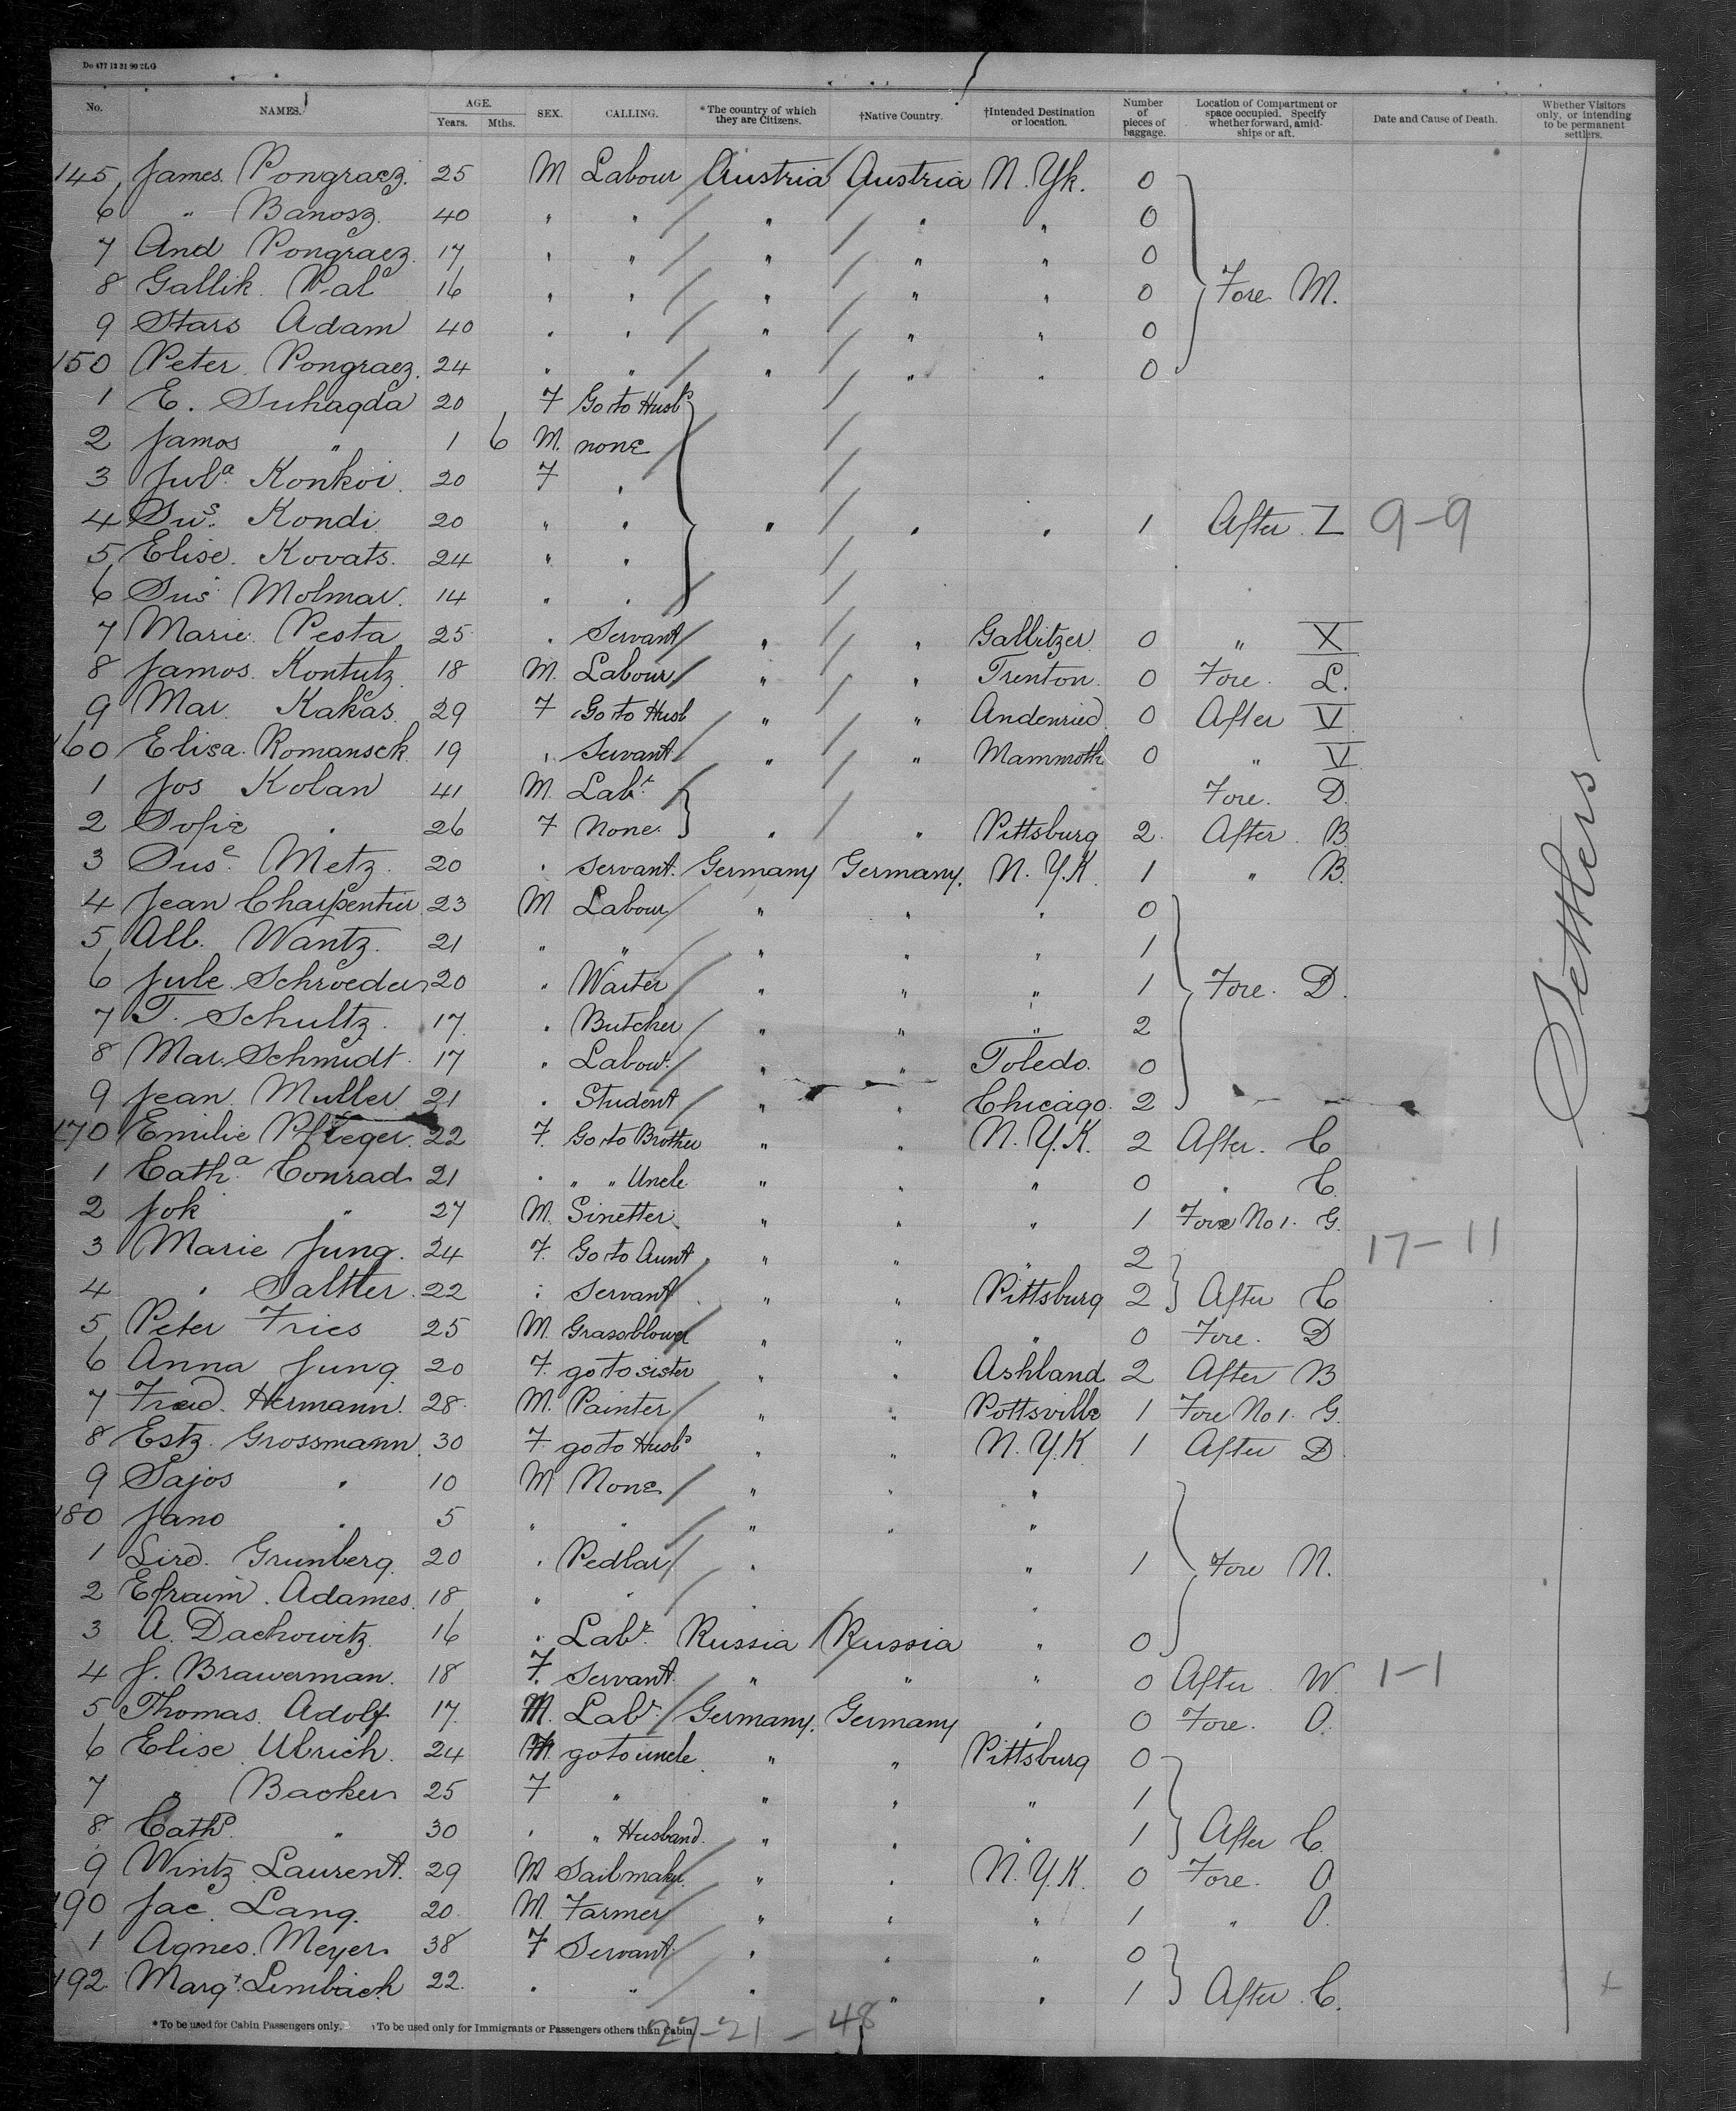 Do 477 12 21 90 2LG
No. NAMES. AGE. Years. Mths. SEX. CALLING. *The country of which they are Citizens. †Native Country. †Intended Destination or location. Number of pieces of baggage. Location of Compartment or space occupied. Specify whether forward, amidships or aft. Date and Cause of Death. Whether Visitors only, or intending to be permanent settlers.
145 James Pongracz. 25 M Labour Austria Austria N. Yk. 0
6 " Banosz. 40 " " " " " 0
7 And Pongracz. 17 " " " " " 0
8 Gallik Pal 16 " " " " " 0 Fore M.
9 Stars Adam 40 " " " " " 0
150 Peter Pongracz. 24 " " " " " 0
1 E. Suhagda 20 F Go to Husbd
2 Jamos " 1 6 M. none
3 Jula Konkoi. 20 F "
4 Sus. Kondi 20 " " " " " 1 After Z 9-9
5 Elise. Kovats. 24 " "
6 Sus Molmar. 14 " "
7 Marie Pesta 25 " Servant " " Gallitzer 0 " X
8 Jamos. Kontutz 18 M. Labour " " Trenton. 0 Fore. L.
9 Mar. Kakas. 29 F Go to Husb " " Andenried 0 After V
160 Elisa. Romansek 19 " Servant " " Mammoth 0 " V
1 Jos Kolan 41 M. Labr. Fore. D.
2 Sofie " 26 F None. " " Pittsburg 2 After B
3 Suse Metz. 20 " Servant. Germany Germany. N. Y.K. 1 " B.
4 Jean Charpentier 23 M Labour " " " 0
5 Alb. Wantz. 21 " " " " " 1
6 Jule Schroeder 20 " Waiter " " " 1 Fore. D.
7 T. Schultz. 17. " Butcher " " " 2
8 Mar. Schmidt. 17 " Labour. " " Toledo. 0
9 Jean Muller 21 " Student " " Chicago. 2
170 Emilie Pfleger. 22 F. Go to Brother " " N. Y.K. 2 After. C
1 Catha Conrad 21 " " " Uncle " " " 0 " C.
2 Jok " 27 M. Sinetter. " " " 1 Fore No 1. G.
3 Marie Jung. 24 F. Go to Aunt " " " 2 17-11
4 " Saltter. 22 " Servant " " Pittsburg 2 After C
5 Peter Fries 25 M. Grassblower " " " 0 Fore. D
6 Anna Jung 20 F. go to sister " " Ashland 2 After B
7 Fred. Hermann. 28. M. Painter " " Pottsville 1 Fore No 1. G.
8 Estz. Grossmann 30 F. go to Husbd " " N. Y.K 1 After D
9 Sajos " 10 M None " " "
180 Jano " 5 " " " " "
1 Sird. Grunberg. 20 " Pedlar " " 1 Fore N.
2 Efraim. Adames. 18 " " " "
3 A. Dachowitz. 16 " Labr. Russia Russia " 0
4 J. Brawerman. 18 F. Servant. " " " 0 After W. 1-1
5 Thomas. Adolf 17. M. Labr. Germany. Germany " 0 Fore. O.
6 Elise Ulrich. 24 go to uncle " " Pittsburg 0
7 " Backer 25 F " " " " 1
8 Cath. " 30 " " Husband. " " " 1 After C.
9 Wintz Laurent. 29 M Sailmaker. " " N. Y.K. 0 Fore. O
190 Jac. Lang. 20. M. Farmer " " " 1 " O.
1 Agnes. Meyer 38 F Servant " " " 0
192. Margt. Limbach 22. " " " " " 1 After C.
Settlers
*To be used for Cabin Passengers only. †To be used only for Immigrants or Passengers others than Cabin.
27-21 - 48